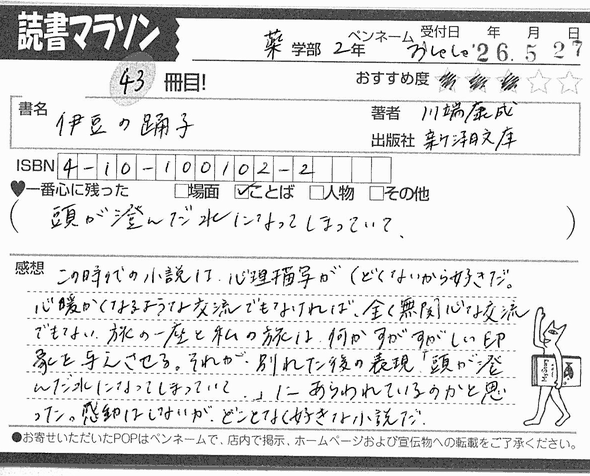 読書マラソン
薬 学部 2年 ペンネーム おしゃしゃ 受付日 年 月 日 26.5.27
43 冊目!
おすすめ度 ★★★☆☆
書名 伊豆の踊子
著者 川端康成
出版社 新潮文庫
ISBN 4-10-100102-2
♥一番心に残った □場面 ☑ことば □人物 □その他
(頭が澄んだ水になってしまっていて、)
感想 この時代の小説は、心理描写がくどくないから好きだ。
心暖かくなるような交流でもなければ、全く無関心な交流
でもない。旅の一座と私の旅は、何かすがすがしい印
象を与えさせる。それが、別れた後の表現「頭が澄
んだ水になってしまっていて、」にあらわれているのかと思
った。感動はしないが、どことなく好きな小説だ。
●お寄せいただいたPOPはペンネームで、店内で掲示、ホームページおよび宣伝物への転載をご了承ください。